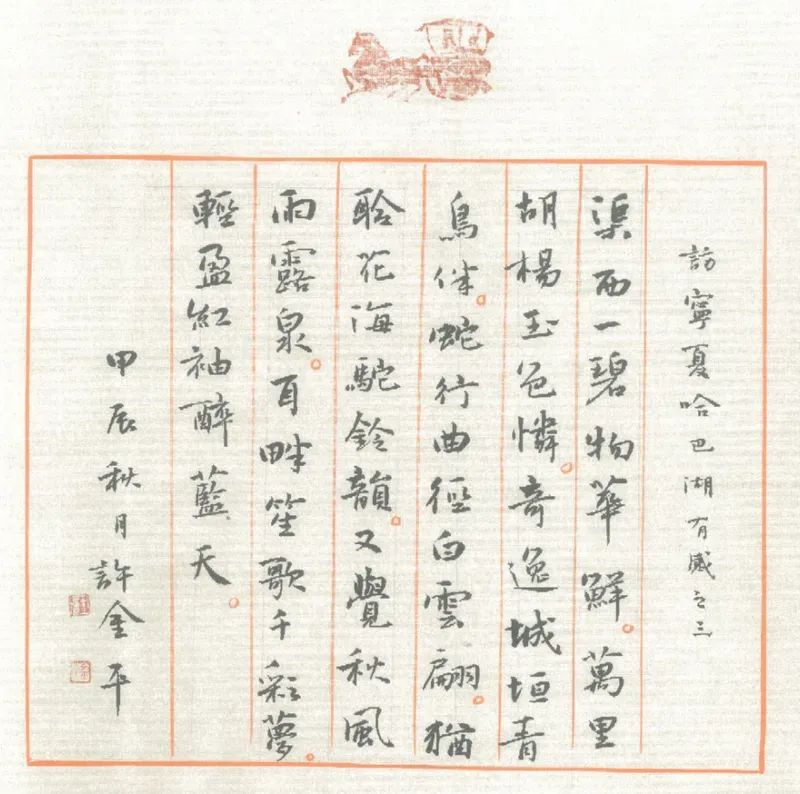 訪寧夏哈巴湖有感之三
渠西一碧物華鮮。萬里
胡楊玉色憐。奇逸城垣青
鳥伴。蛇行曲徑白雲翩。猶
聆花海駝鈴韻。又覺秋風
雨露泉。耳畔笙歌千彩夢。
輕盈紅袖醉藍天。
甲辰秋月許金平